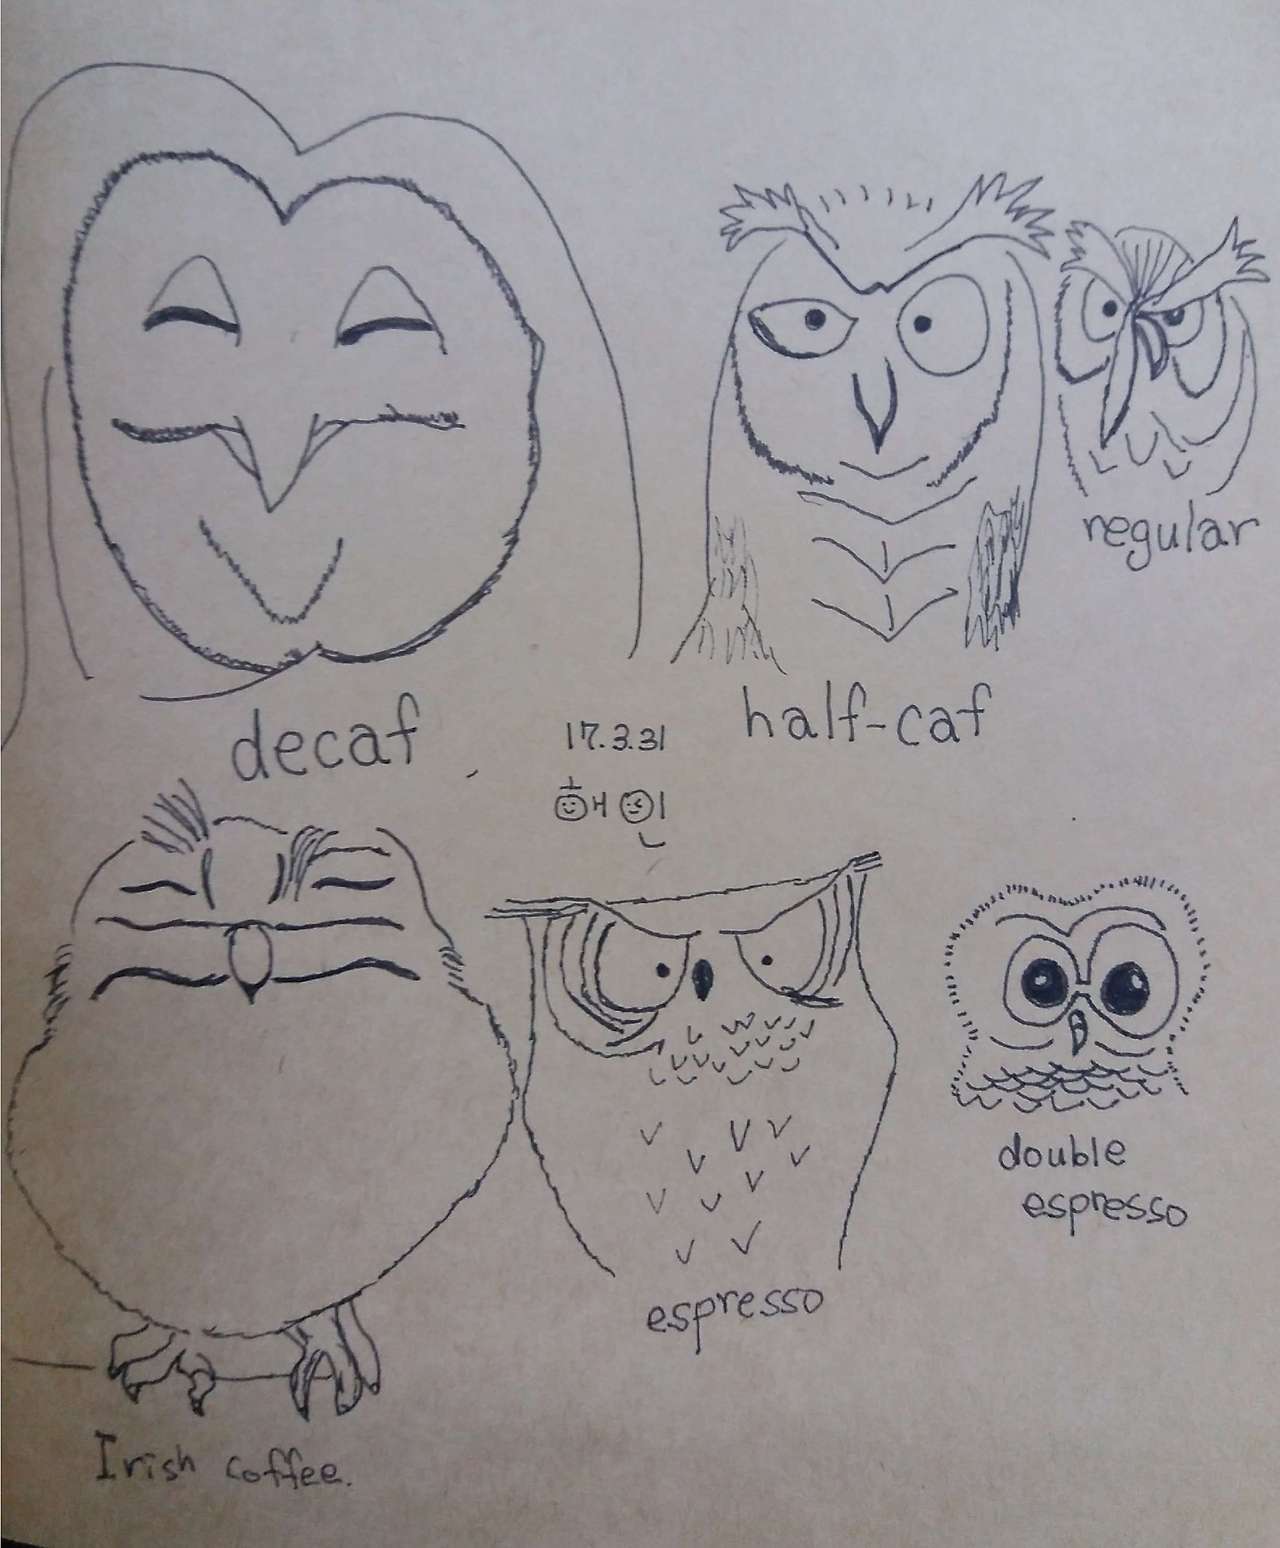 decaf
half-caf
regular
17.3.31
해인
Irish coffee.
espresso
double
espresso